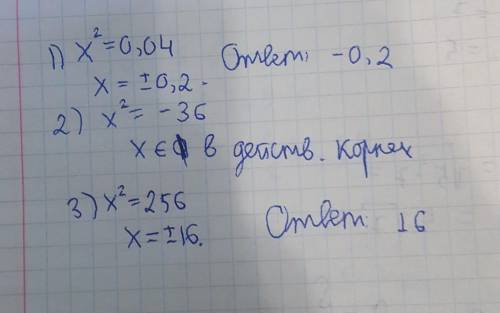 1) x² = 0,04 Ответ: -0,2
x = ±0,2.
2) x² = -36
x ∈ ϕ в действ. корнях
3) x² = 256
x = ±16. Ответ 16